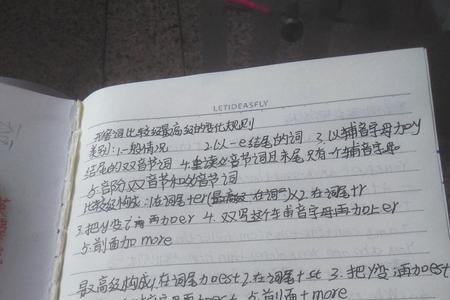 LETIDEASFLY
形容词比较级最高级的变化规则
类别:1.一般情况 2.以-e结尾的词 3.以辅音字母加y
结尾的双音节词 4.重读闭音节词且末尾只有一个辅音字母
5.部分双音节和多音节词
比较级构成:1.在词尾+er(最高级 在词)×2.在词尾+r
3.把y变i再加er 4.双写这个辅音字母再加er
5.前面加more
最高级构成1.在词尾加est 2.在词尾+st 3.把y变i再加est
再加est 5.前面+more